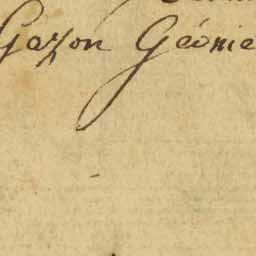 Gazon Géonie